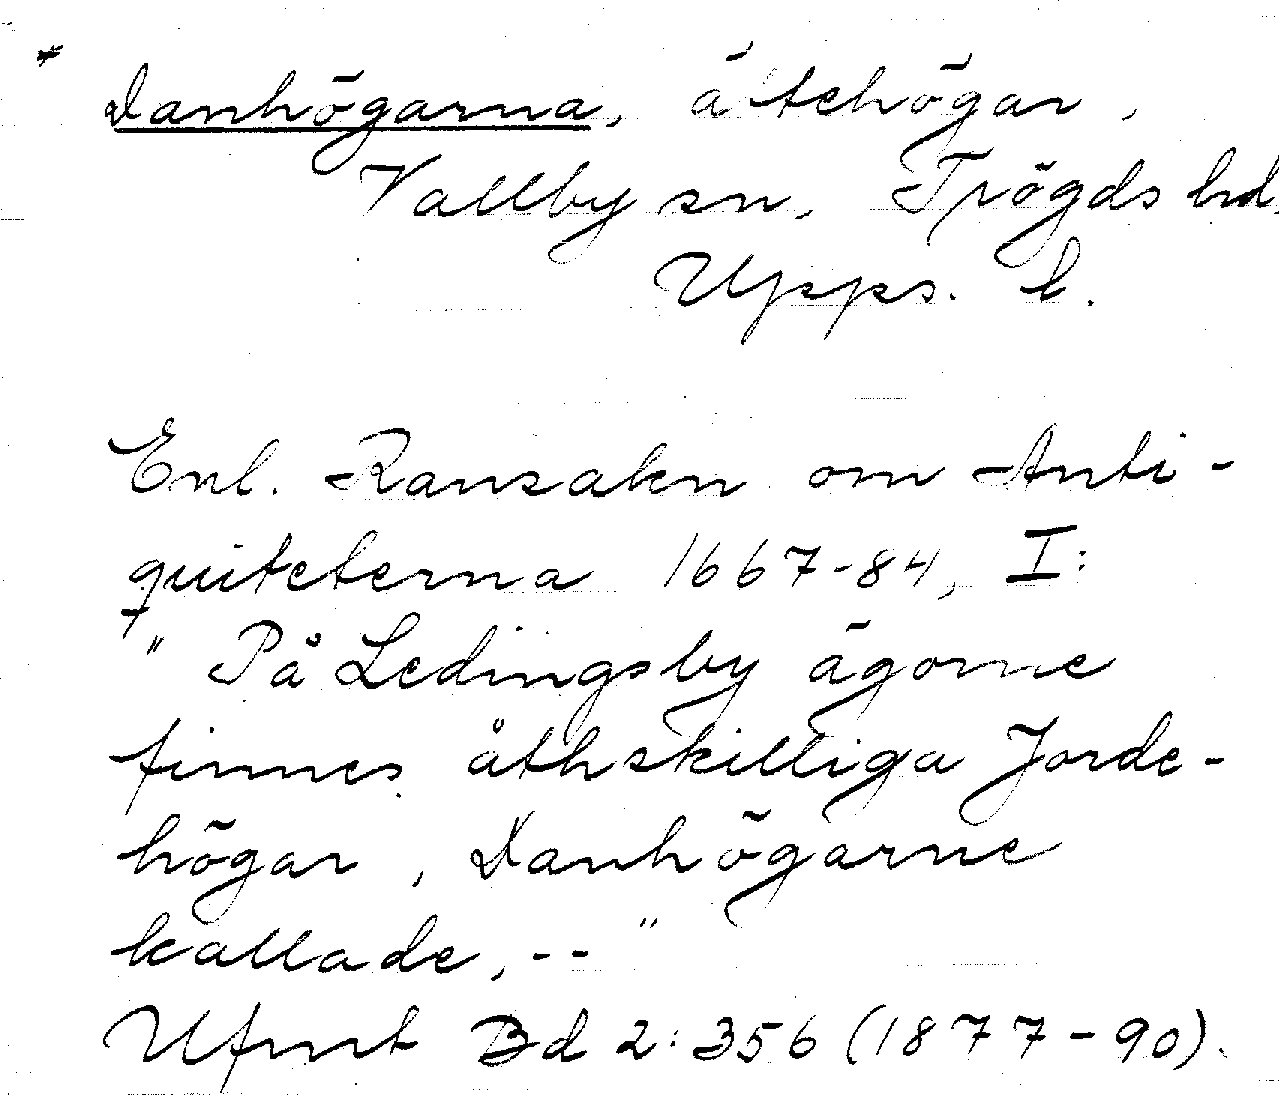 * Danhögarna, ättehögar,
Vallby sn, Trögds hd,
Upps. l.
Enl. Ransakn om Anti-
quiteterna 1667-84, I:
" På Ledingsby ägorne
finnes åthskilliga Jorde-
högar, Danhögarne
kallade, -- "
Ufmt Bd 2:356 (1877-90).